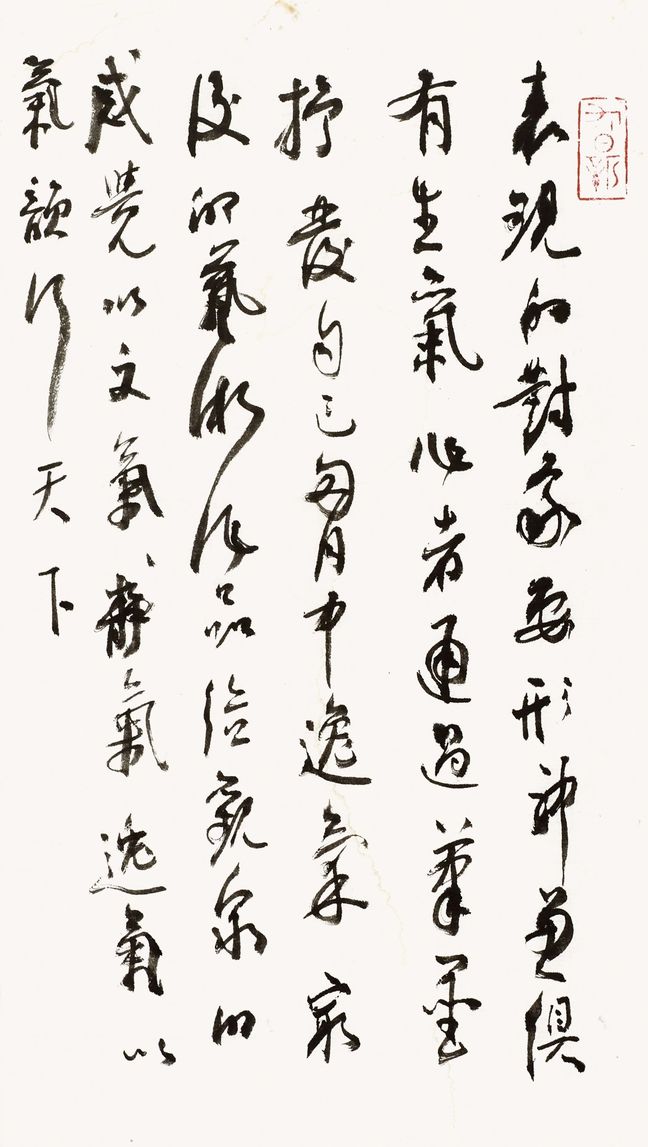 表現的對象要形神兼俱
有生氣作者通過筆墨
抒發自己胸中逸氣最
後的藝術作品給觀衆的
感覺以文氣靜氣逸氣以
氣韻行天下